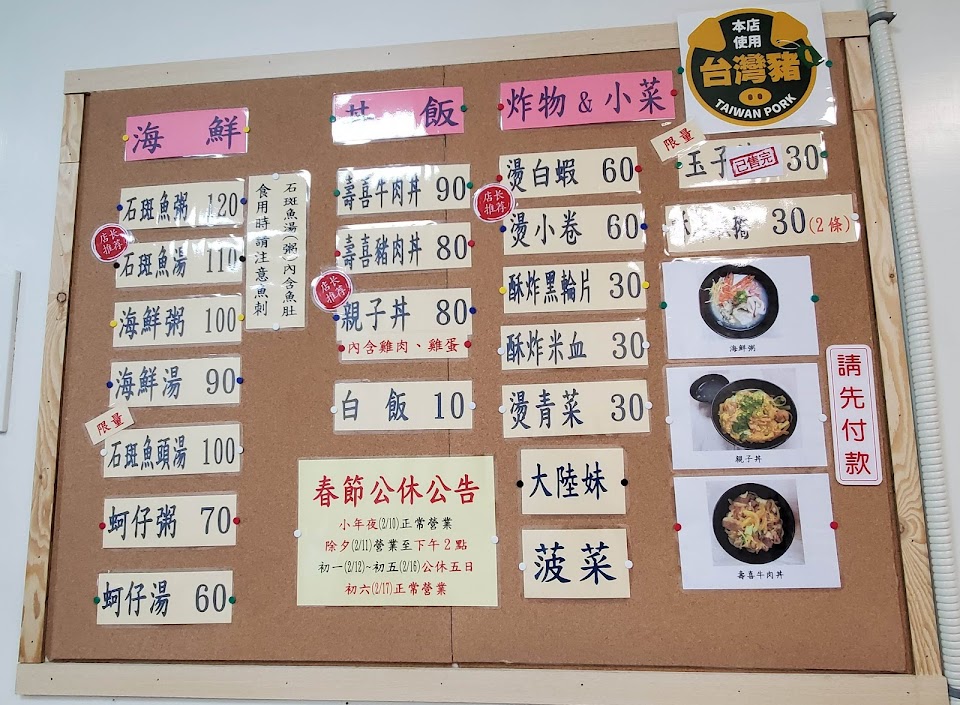 海鮮
石斑魚粥 120
店长
推荐
石斑魚湯 110
海鮮粥 100
海鮮湯 90
限量
石斑魚頭湯 100
蚵仔粥 70
蚵仔湯 60
石斑魚湯(粥)內含魚肚
食用時請注意魚刺
丼飯
壽喜牛肉丼 90
壽喜豬肉丼 80
店长
推荐
親子丼 80
內含雞肉、雞蛋
白飯 10
春節公休公告
小年夜(2/10)正常營業
除夕(2/11)營業至下午2點
初一(2/12)~初五(2/16)公休五日
初六(2/17)正常營業
炸物 & 小菜
燙白蝦 60
店长
推荐
燙小卷 60
酥炸黑輪片 30
酥炸米血 30
燙青菜 30
大陸妹
菠菜
本店
使用
台灣豬
TAIWAN PORK
限量
玉子 30
已售完
30(2條)
海鮮粥
親子丼
壽喜牛肉丼
請先付款